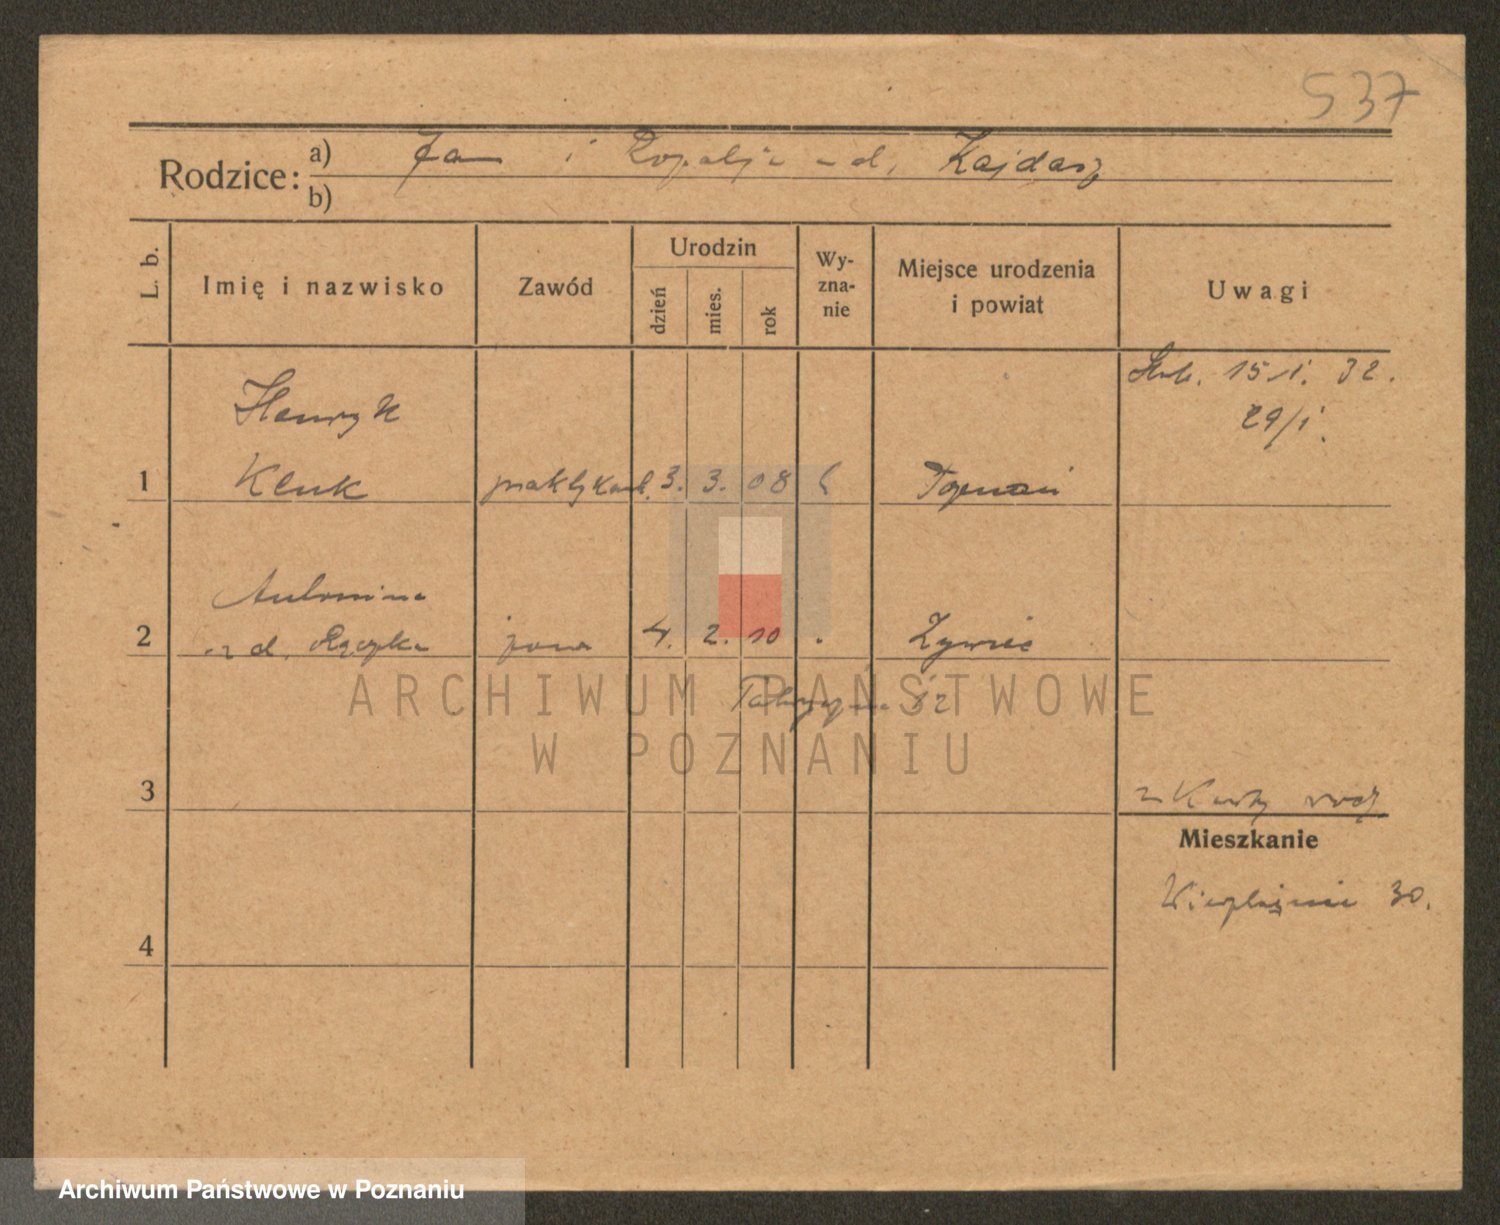 537
Rodzice: a) Jan i Rozalja z d. Kajdasz
b)
L. b. Imię i nazwisko Zawód Urodzin dzień mies. rok Wyznanie Miejsce urodzenia i powiat Uwagi
15.1. 32.
29/1.
Henryk
1 Kluk praktykant. 3. 3. 08 Poznań
Antonina
2 z d. żona 4. 2. 10 Żywiec
ARCHIWUM PAŃSTWOWE
W POZNANIU
3 z Karty rodz.
Mieszkanie
30.
4
Archiwum Państwowe w Poznaniu